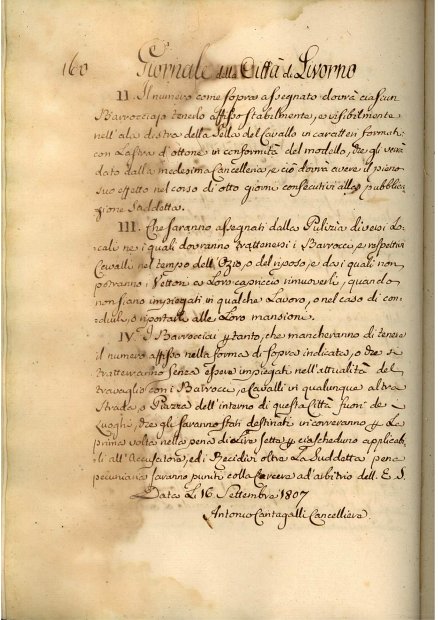 160 Giornale della Città di Livorno
II. Il numero come sopra assegnato dovrà ciascun
Barrocciajo tenerlo affisso stabilmente, e visibilmente
nell'ala destra della Sella del Cavallo in caratteri formati
con Lastra d'ottone in conformità del modello, che gli verrà
dato dalla medesima Cancelleria, e ciò dovrà avere il pieno
suo effetto nel corso di otto giorni consecutivi alla pubblica-
zione Suddetta.
III. Che saranno assegnati dalla Pulizia diversi Lo-
cali ne i quali dovranno trattenersi i Barrocci, e respettivi
Cavalli nel tempo dell'Ozio, o del riposo, e da i quali non
potranno i Vettori a Loro capriccio rimuoverli, quando
non siano impiegati in qualche Lavoro, o nel caso di con-
durli, o riportarli alle Loro mansioni.
IV. I Barrocciai ptanto, che mancheranno di tenere
il numero affisso nella forma di sopra indicata, o che si
tratterranno senza essere impiegati nell'attualità del
travaglio con i Barrocci, e Cavalli in qualunque altra
Strada, o Piazza dell'interno di questa Città fuori de i
Luoghi, che gli saranno stati destinati incorreranno p La
prima volta nella pena di Lire sette p ciascheduno applicab-
ili all'Accusatore, ed i Recidivi oltre La Suddetta pena
pecuniaria saranno puniti colla Carcere ad'arbitrio dell. E. S.
Data Li 16 Settembre 1807
Antonio Cantagalli Cancelliere.